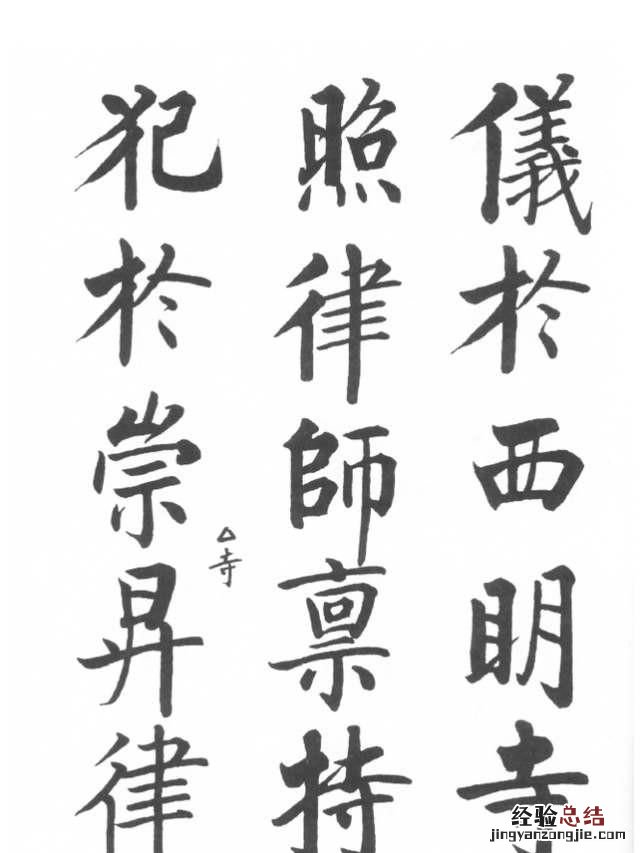 儀於西明寺
照律師禀持
犯於崇昇律
△寺
经验总结
jingyanzongjie.com